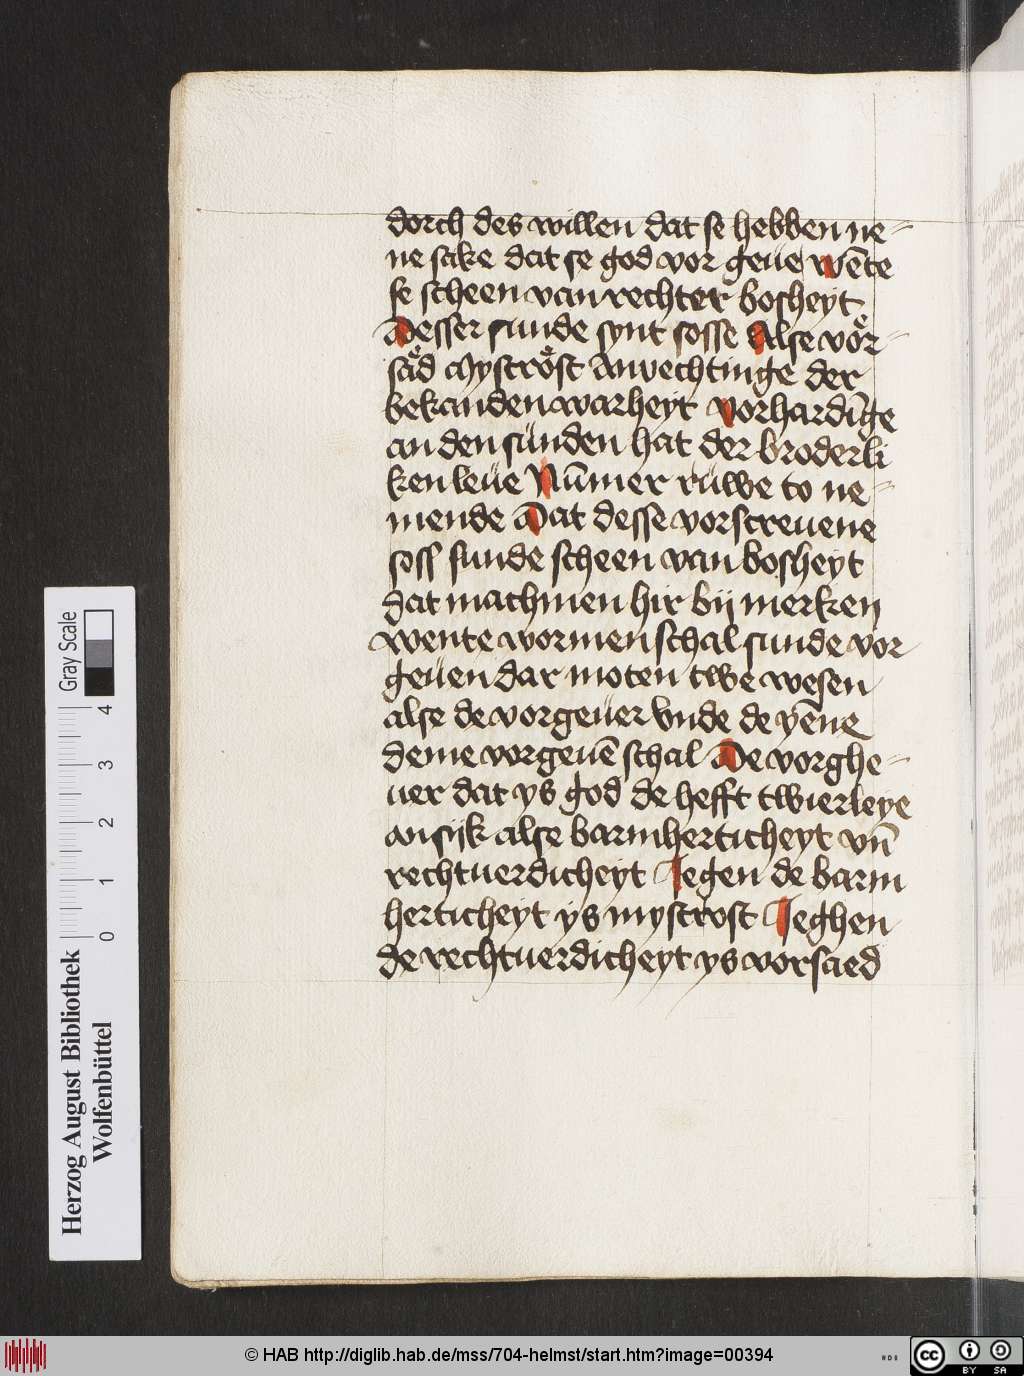 dorch des willen dat se hebben ne-
ne sake dat se god vor geue wēte
se scheen van rechter bosheyt
Desser sunde synt sosse Alse voͤr-
saͤd Mystroͤst Anvechtinge der
bekanden warheyt vorhardīge
an den sünden hat der broderli
ken leue Nūmer rüwe to ne-
mende Dat desse vorscreuene
soss sunde scheen van bosheyt
dat machmen hir bij merken
wente wormen schal sunde vor
geuen dar moten twe wesen
alse de vorgeuer vnde de yēne
deme vorgeuē schal De vorghe-
uer dat ys god de hefft twierleye
ansijk alse barmherticheyt vn̄
rechtuerdicheyt Jegen de barm
herticheyt ys mystrost Jeghen
de rechtuerdicheyt ys vorsaed
Herzog August Bibliothek
Wolfenbüttel
Gray Scale
0 1 2 3 4
© HAB http://diglib.hab.de/mss/704-helmst/start.htm?image=00394
cc BY SA